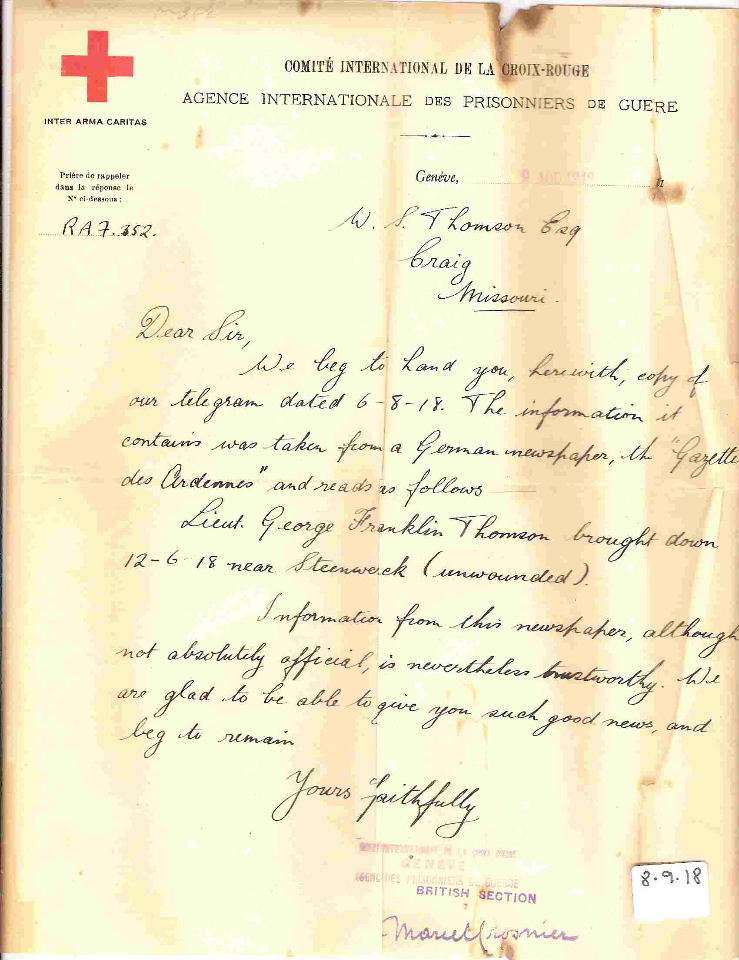 COMITÉ INTERNATIONAL DE LA CROIX-ROUGE
AGENCE INTERNATIONALE DES PRISONNIERS DE GUERE
INTER ARMA CARITAS
Prière de rappeler
dans la réponse le
N° ci-dessous:
RA7.352.
Genève,
W. S. Thomson Esq
Craig
Missouri.
Dear Sir,
We beg to hand you, herewith, copy of
our telegram dated 6-8-18. The information it
contains was taken from a German newspaper, th "Gazette
des Ardennes" and reads as follows
Lieut. George Franklin Thomson brought down
12-6-18 near Steenweck (unwounded).
Information from this newspaper, although
not absolutely official, is nevertheless trustworthy. We
are glad to be able to give you such good news, and
beg to remain
Yours faithfully
INTERNATIONALE DE LA CROIX ROUGE
GENÈVE
AGENCE DES PRISONNIERS DE GUERRE
BRITISH SECTION
8.9.18
Marcel Crosnier